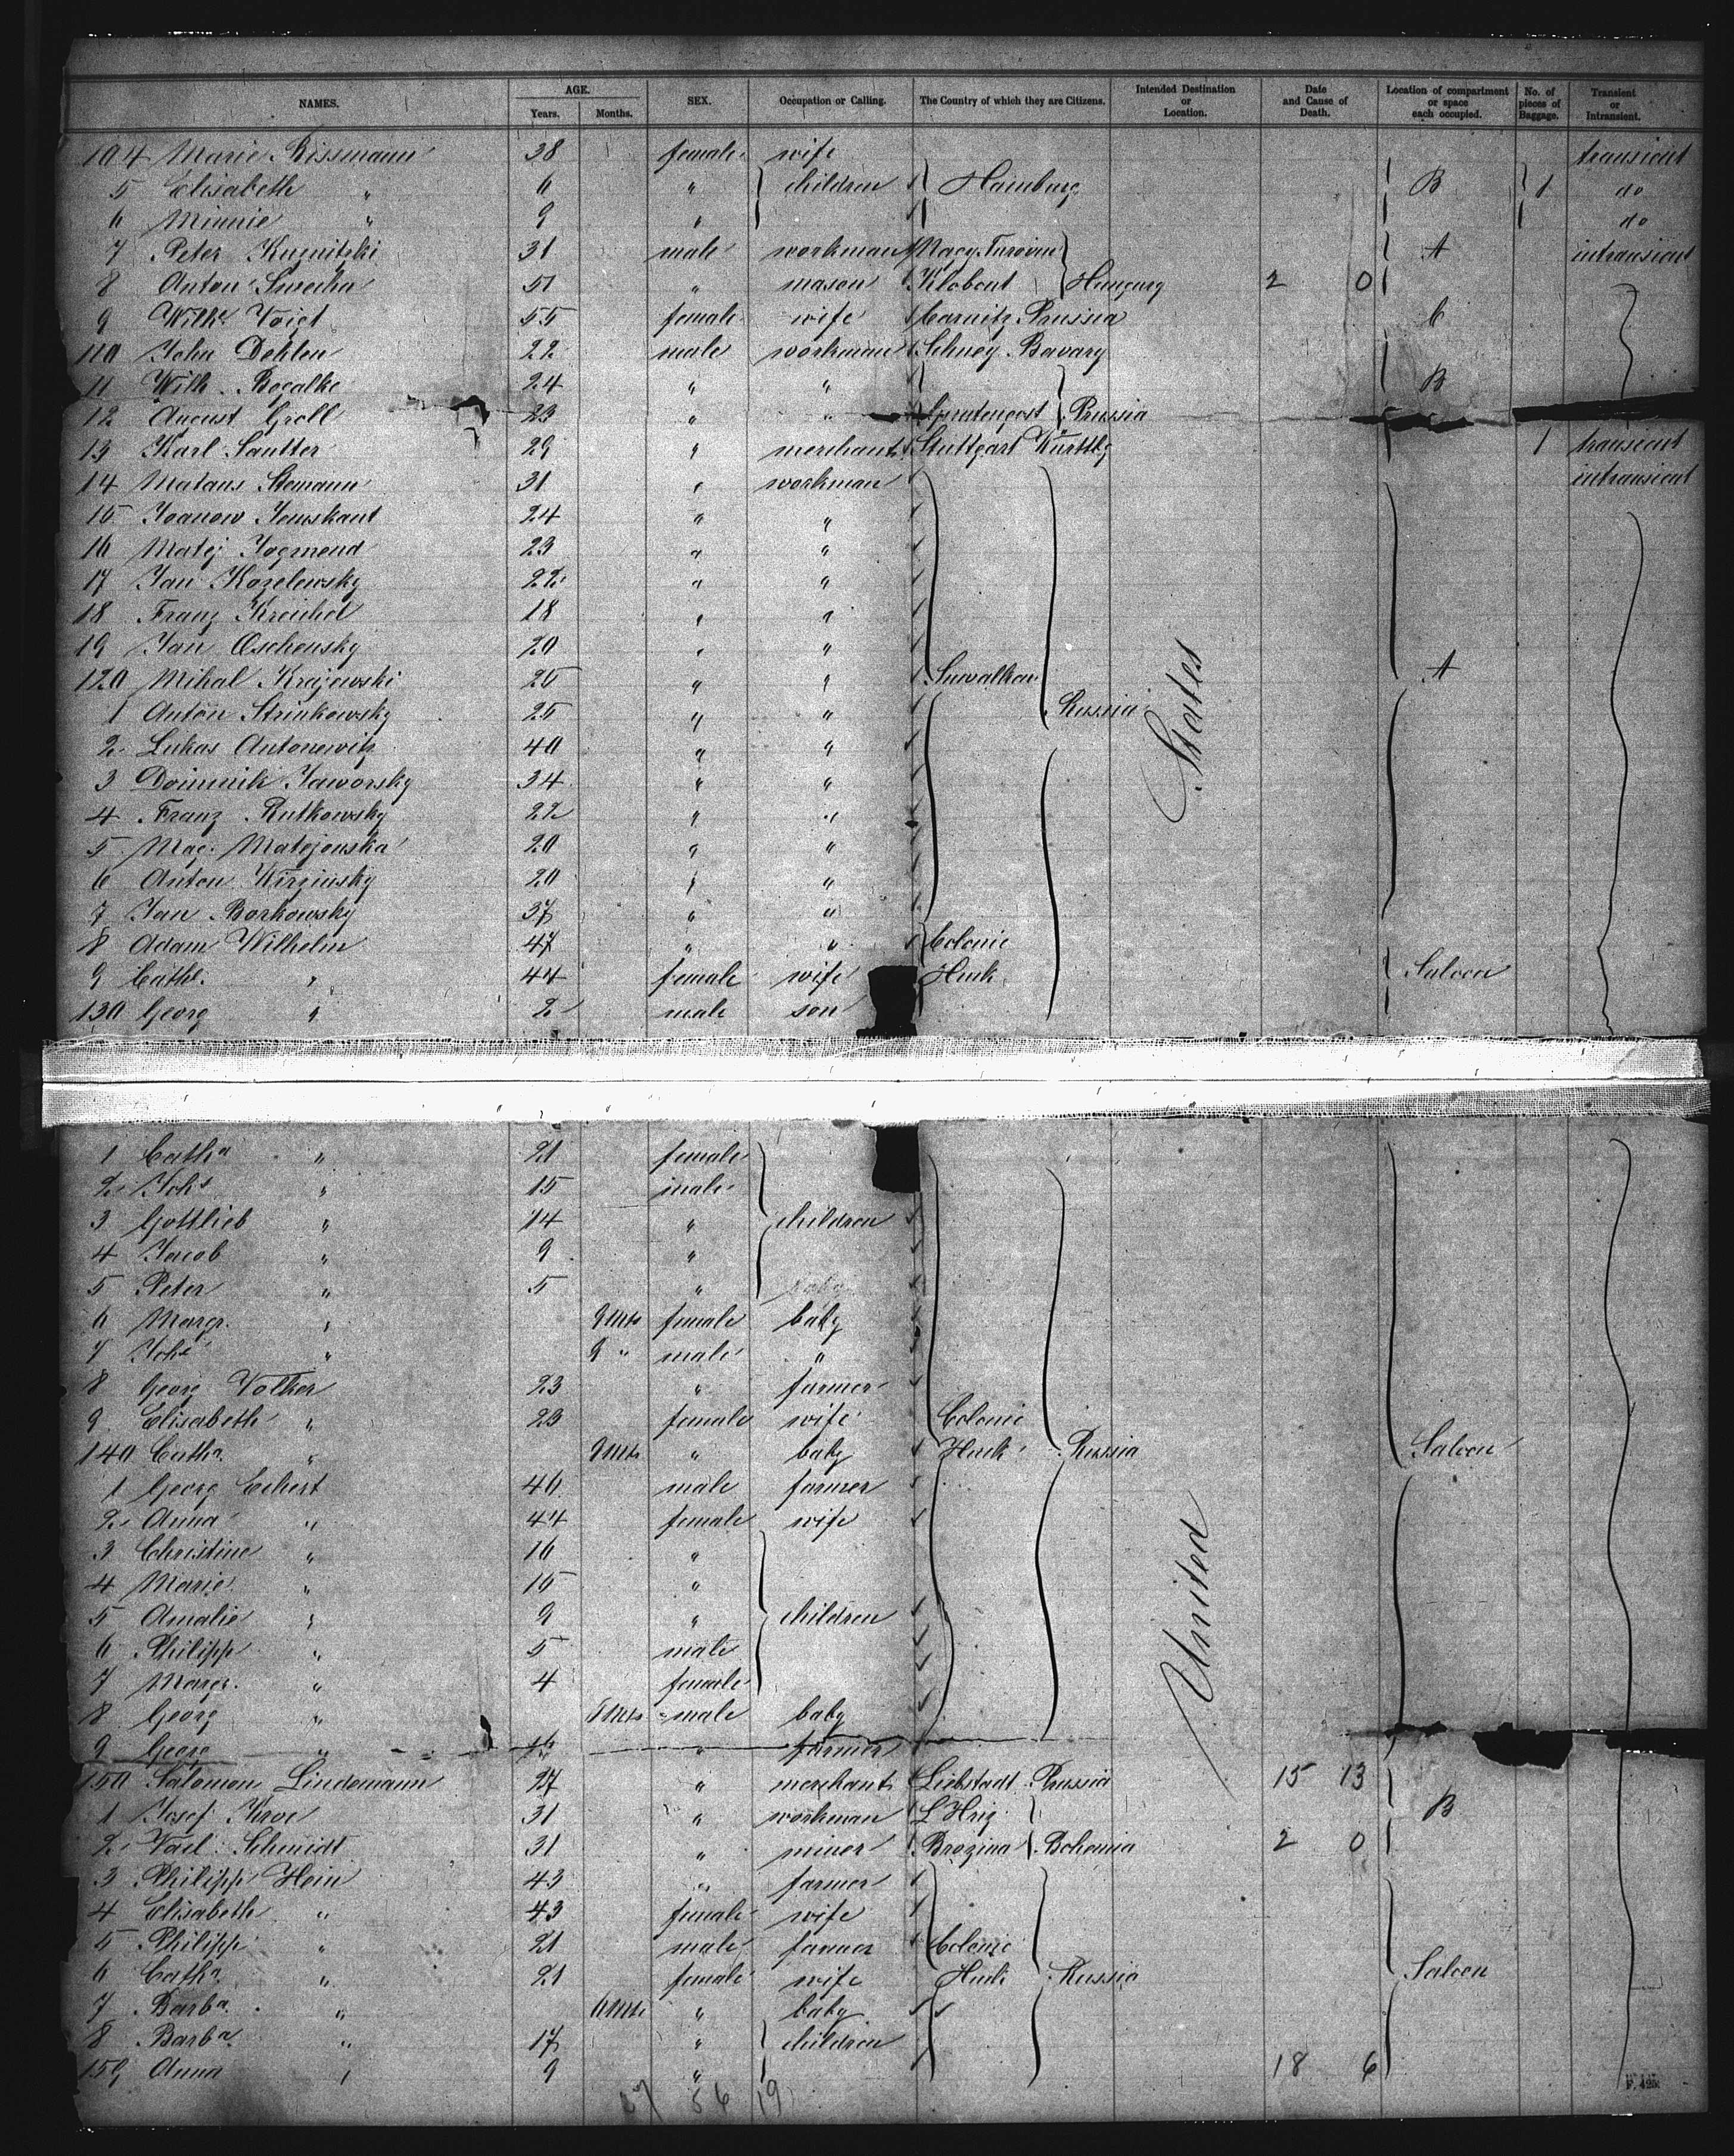 NAMES. AGE. Years. Months. SEX. Occupation or Calling. The Country of which they are Citizens. Intended Destination or Location. Date and Cause of Death. Location of compartment or space each occupied. No. of pieces of Baggage. Transient or Intransient.
104 Marie Rissmann 38 female wife transient
5 Elisabeth " 6 " children Hamburg B 1 do
6 Minnie " 9 " do
7 Peter Kusnitzki 31 male workman A intransient
8 Anton 51 " mason Klobont Hungary 2 0
9 Wilh. Voigt 55 female wife Carnitz Prussia C
110 John Dehlen 22 male workman Schney Bavary
11 Wilh. Rogalke 24 " " B
12 August Groll 23 " " Prussia
13 Karl Sautter 29 " merchant Stuttgart Württbg 1 transient
14 Mataus 31 " workman intransient
15 Joanow 24 " "
16 Matej Jogmend 23 " "
17 Jan Kozelewsky 22 " "
18 Franz Kreichel 18 " "
19 Jan Oschensky 20 " "
120 Mihal Krajewski 25 " " Suwalkan A
1 Anton Strinkowsky 25 " " Russia
2 Lukas Antonewitz 40 " "
3 Dominik Jaworsky 34 " "
4 Franz Rutkowsky 22 " "
5 Mag. Matejewska 20 " "
6 Anton Wirzinsky 20 " "
7 Jan Borkowsky 37 " "
8 Adam Wilhelm 47 " " Colonie
9 Cathe. " 44 female wife Huck Saloon
130 Georg " 2 male son
States
1 Catha " 21 female
2 Johs " 15 male
3 Gottlieb " 14 " children
4 Jacob " 9 "
5 Peter " 5 "
6 Margr. " 9 Mts female baby
7 Johs " 9 " male "
8 Georg Volker 23 " farmer
9 Elisabeth " 23 female wife Colonie
140 Catha. " 9 Mts " baby Huck Russia Saloon
1 Georg Eckert 46 male farmer
2 Anna " 44 female wife
3 Christine " 16 "
4 Marie " 15 "
5 Amalie " 9 " children
6 Philipp " 5 male
7 Margr. " 4 female
8 Georg " Mts male baby
9 Georg " " farmer
United
150 Salomon Lindemann 27 " merchant Liebstadt Prussia 15 13
1 Josef 31 " workman B
2 Schmidt 31 " miner Brozina Bohemia 2 0
3 Philipp Hein 43 " farmer
4 Elisabeth " 43 female wife
5 Philipp " 21 male farmer Colonie
6 Catha " 21 female wife Huck Russia Saloon
7 Barba. " 6 Mts " baby
8 Barba. " 17 " children
159 Anna " 9 " 18 6
56 19